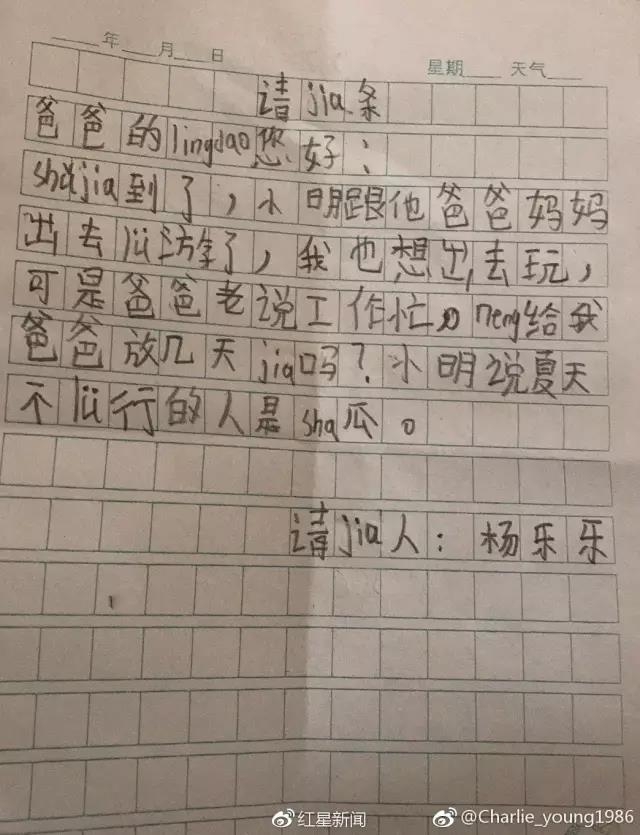 ____年____月____日
星期____ 天气____
请jia条
爸爸的lingdao您好：
shǔjia到了，小明跟他爸爸妈妈
出去lü游了，我也想出去玩，
可是爸爸老说工作忙。neng给我
爸爸放几天jia吗？小明说夏天
不lü行的人是sha瓜。
请jia人：杨乐乐
红星新闻
@Charlie_young1986